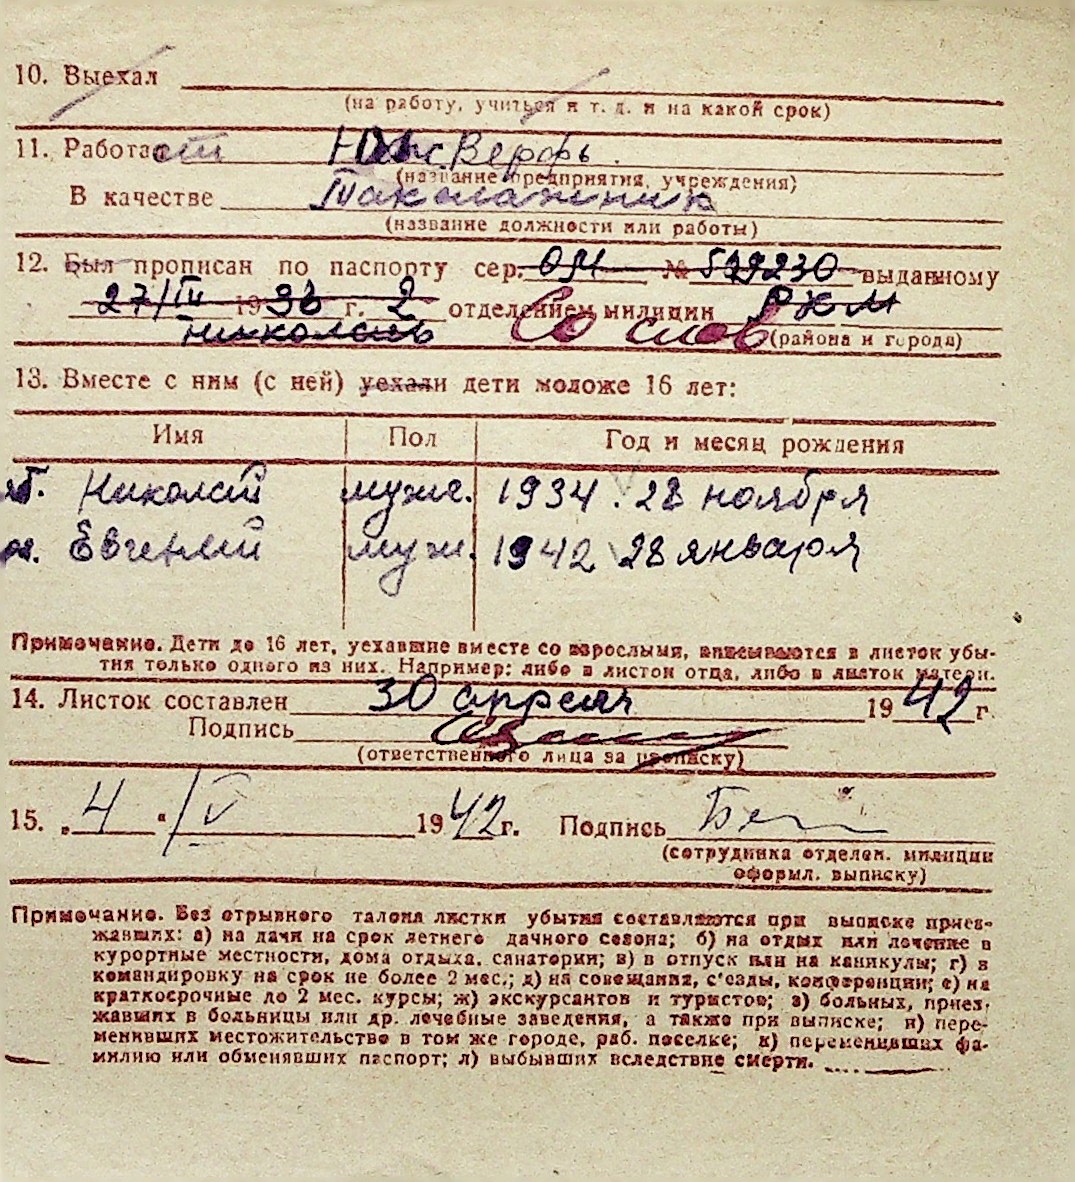 10. Выехал
(на работу, учиться и т. д. и на какой срок)
11. Работает Верфь.
(название предприятия, учреждения)
В качестве Такелажник
(название должности или работы)
12. Был прописан по паспорту сер. № 539230 выданному
27/III 1936 г. 2 отделением милиции РКМ
Николаев Со слов (района и города)
13. Вместе с ним (с ней) уехали дети моложе 16 лет:
Имя Пол Год и месяц рождения
Николай муж. 1934. 28 ноября
Евгений муж. 1942 28 января
Примечание. Дети до 16 лет, уехавшие вместе со взрослыми, вписываются в листок убы-
тия только одного из них. Например: либо в листок отца, либо в листок матери.
14. Листок составлен 30 апреля 1942 г.
Подпись
(ответственного лица за прописку)
15. „ 4 “ /V 1942 г. Подпись
(сотрудника отделен. милиции
оформл. выписку)
Примечание. Без отрывного талона листки убытия составляются при выписке приез-
жавших: а) на дачи на срок летнего дачного сезона; б) на отдых или лечение в
курортные местности, дома отдыха, санатории; в) в отпуск или на каникулы; г) в
командировку на срок не более 2 мес.; д) на совещания, с'езды, конференции; е) на
краткосрочные до 2 мес. курсы; ж) экскурсантов и туристов; з) больных, приез-
жавших в больницы или др. лечебные заведения, а также при выписке; и) пере-
менивших местожительство в том же городе, раб. поселке; к) переменивших фа-
милию или обменявших паспорт; л) выбывших вследствие смерти.